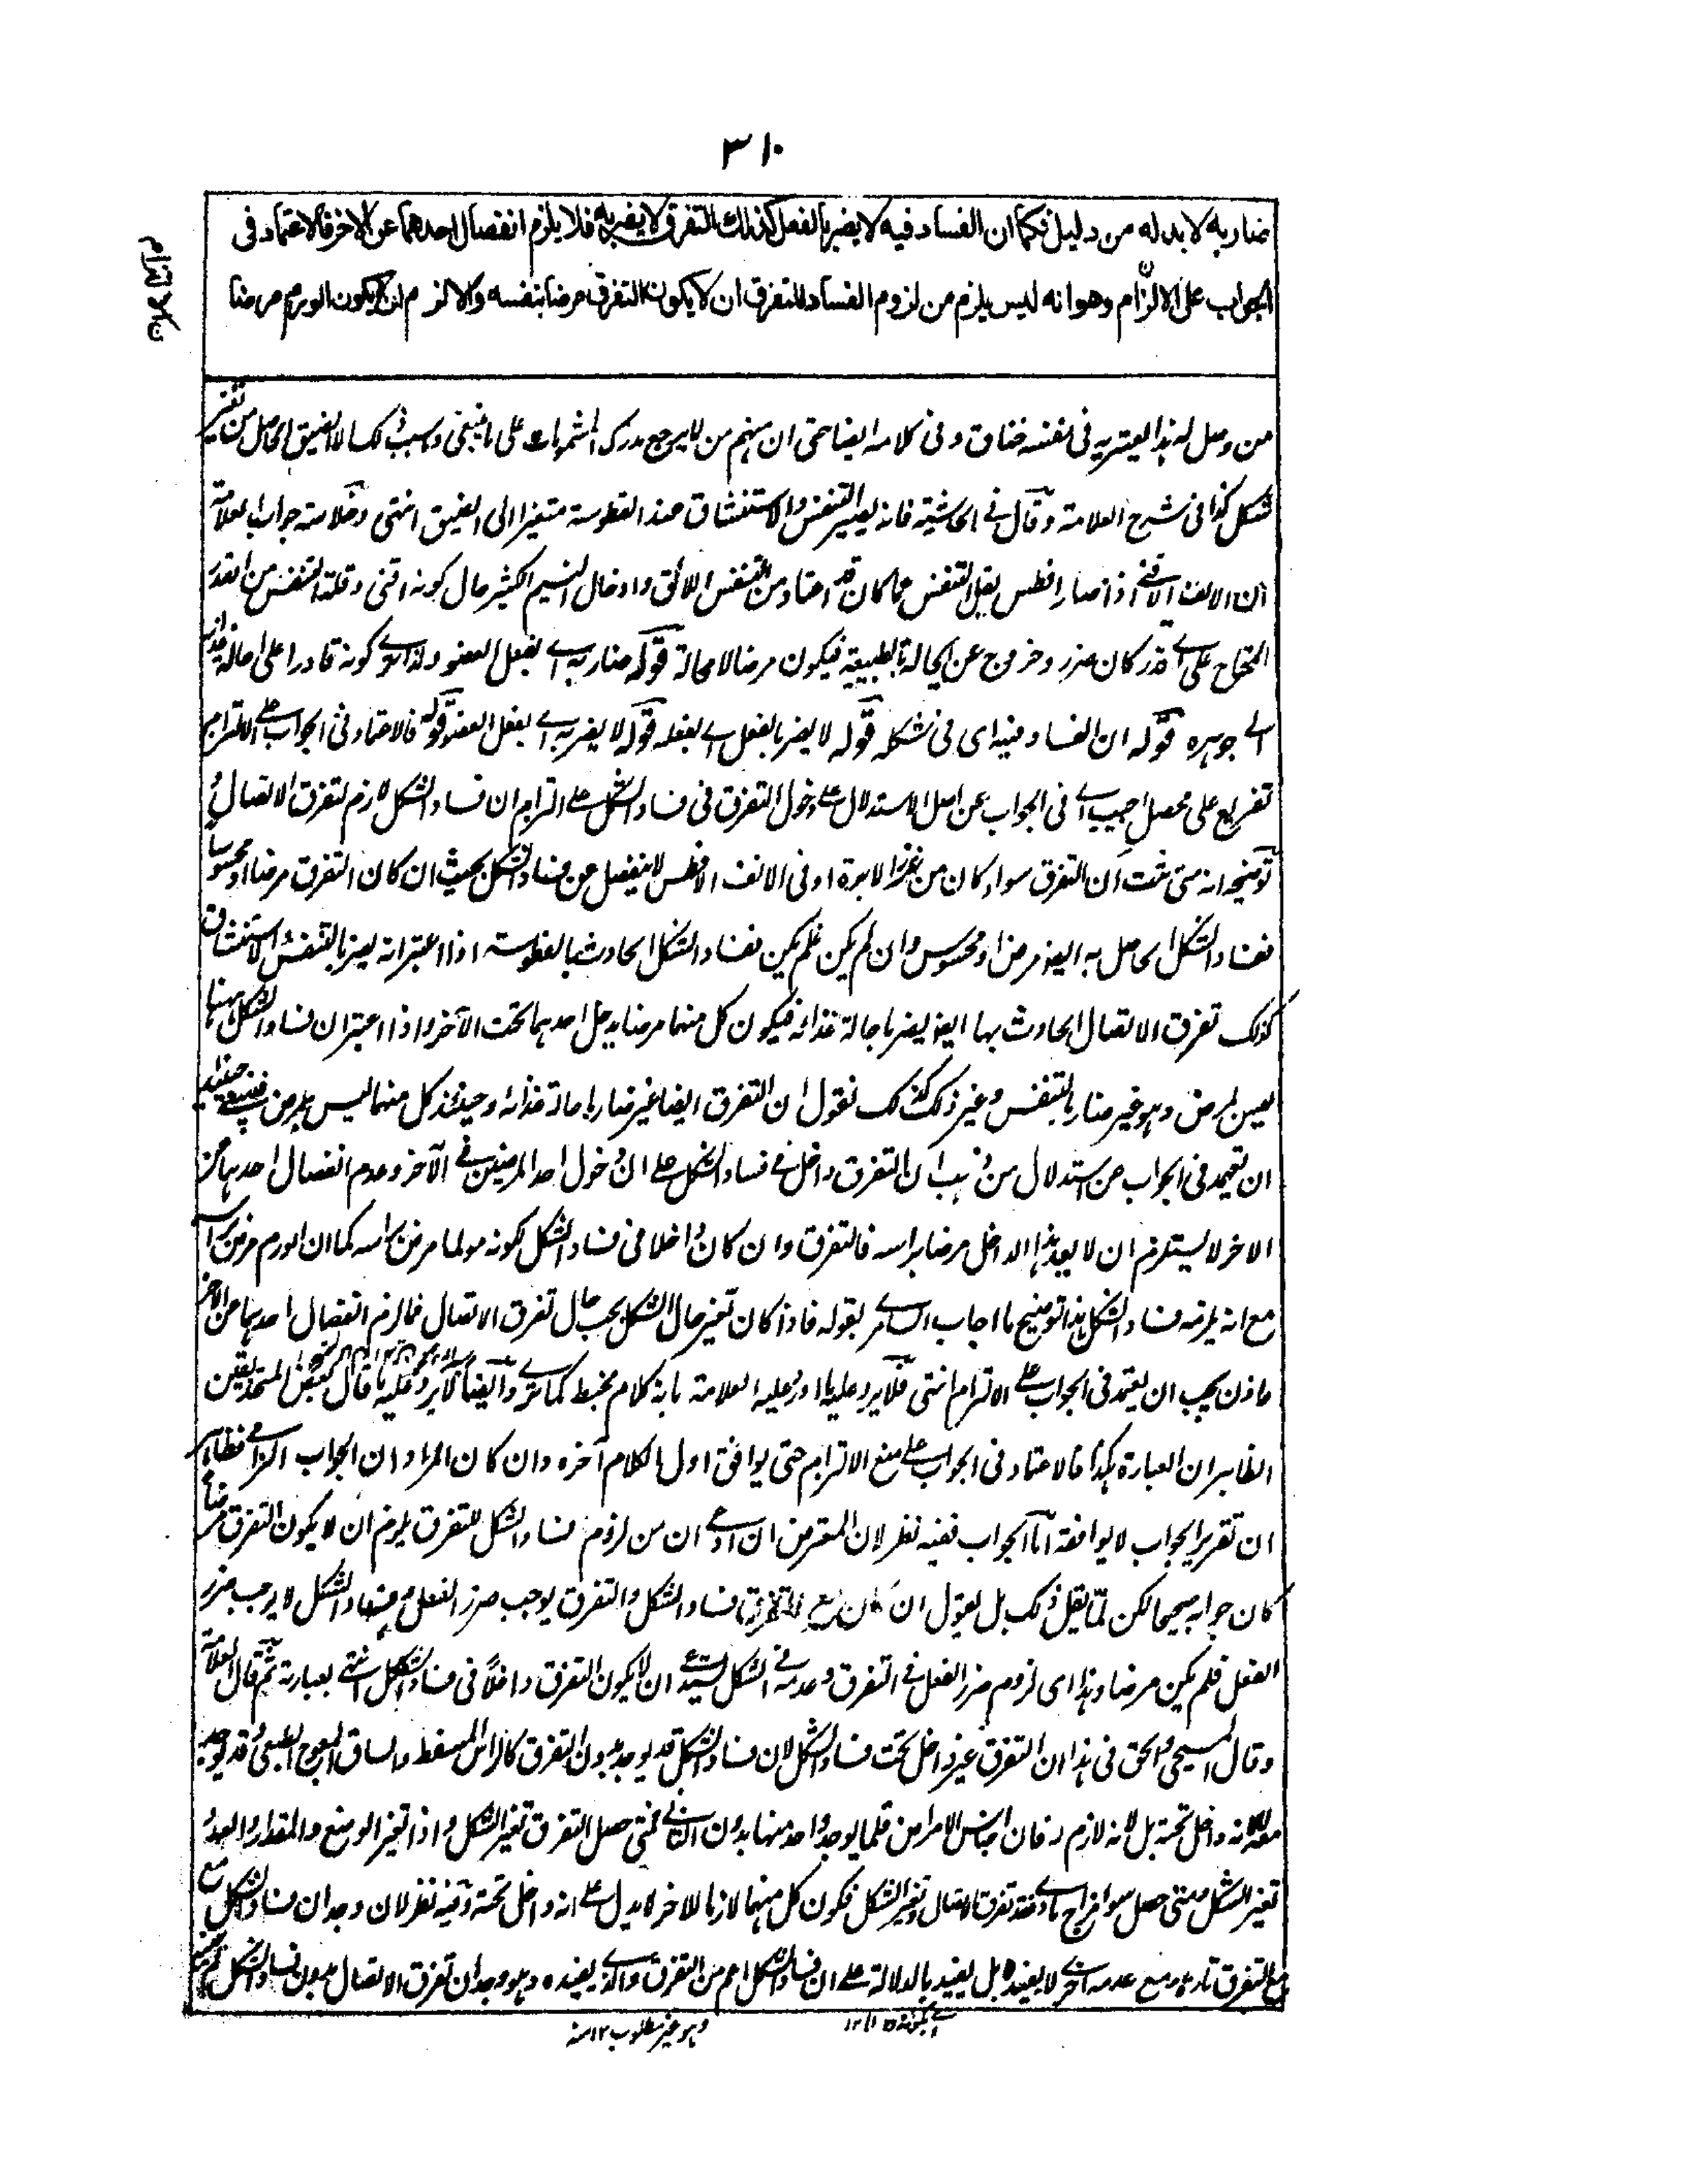 ٣١٠
ضار به لا بد له من دليل فكما ان الفساد فيه لا يضر بالفعل كذلك التفرق لا يضر به فلا يلزم انفصال احدهما عن الاخر فالاعتماد فى
الجواب على الالزام وهو انه ليس يلزم من لزوم الفساد للتفرق ان لا يكون التفرق مرضا بنفسه والا لزم ان لا يكون الورم مرضا
من وصل له فى نفسه ضاق وفى كلامه ايضا حتى ان منهم من لا يرجع مدركه المشمومات على ما ينبغى وسبب ذلك الضيق الحاصل من تغير
شكل كذا فى شرح العلامة وقال فے الحاشية فانه يصير التنفس والاستنشاق عند الفطوسة متغيرا الى الضيق انتهى وخلاصة جواب العلامة
ان الانف الاقنے اذا صار افطس يقل التنفس عما كان قد اعتاد من التنفس اللائق وادخال النسيم الكثير حال كونه اقنى وقلة التنفس من القدر
المحتاج على اے قدر كان ضرر وخروج عن الحالة الطبيعية فيكون مرضا لا محالة قوله ضار به اے بفعل العضو ولذاته كونه قادرا على احالة غذائه
الے جوهره قوله ان الفساد فيه اى فى شكله قوله لا يضر بالفعل اے بفعله قوله لا يضر به اے بفعل العضو قوله فالاعتماد فى الجواب علے الالتزام
تفريع على محصل اجيب اے فى الجواب عن اصل الاستدلال علے دخول التفرق فى فساد الشكل علے التزام ان فساد الشكل لازم لتفرق الاتصال
توضيحه انه متى ثبت ان التفرق سواء كان من غرز الابرة او فى الانف الافطس لا ينفصل عن فساد الشكل بحيث ان كان التفرق مرضا او محسوسا
ففساد الشكل الحاصل به ايضا مرض او محسوس وان لم يكن فلم يكن ففساد الشكل الحادث بالفطوسة اذا اعتبر انه يضر بالتنفس والاستنشاق
كذلك تفرق الاتصال الحادث بها ايضا يضر باحالة غذائه فيكون كل منهما مرضا يدخل احدهما تحت الآخر واذا اعتبر ان فساد الشكل ههنا
ليس بمرض وهو غير ضار بالتنفس وغير ذلك كذلك نقول ان التفرق ايضا غير ضار باحالة غذائه وحينئذ كل منهما ليس بمرض فينبغے حينئذ
ان يعتمد فى الجواب عن استدلال من ذهب ان التفرق داخل فے فساد الشكل علے ان دخول احد المرضين فے الآخر وعدم انفصال احدهما عن
الاخر لا يستلزم ان لا يعد هذا الداخل مرضا براسه فالتفرق وان كان داخلا فى فساد الشكل لكونه مولما مرض براسه كما ان الورم مرض براسه
مع انه يلزمه فساد الشكل هذا توضيح ما اجاب السامرے بقوله فاذا كان تغير حال الشكل بحسب حال تفرق الاتصال فما لزم انفصال احدهما من الآخر
فاذن يجب ان يعتمد فى الجواب علے الالتزام انتهى فلا يرد عليه ما اورد عليه العلامة بانه كلام مخبط كما ترے وايضا لا يرد عليه ما قال بعض المتحذلقين
الظاهر ان العبارة هكذا فالاعتماد فى الجواب علے منع الالتزام حتى يوافق اول الكلام آخره وان كان المراد ان الجواب الزامے فظاهر
ان تقرير الجواب لا يوافقه اما الجواب ففيه نظر لان المعترض ان ادعے ان من لزوم فساد الشكل للتفرق يلزم ان لا يكون التفرق مرضا
كان جوابه صحيحا لكن لم يقل ذلك بل يقول ان فساد الشكل والتفرق يوجب ضرر الفعل وفساد الشكل لا يوجب ضرر
الفعل فلم يكن مرضا وهذا اى لزوم ضرر الفعل فے التفرق وعدمه فے الشكل يستدعے ان لا يكون التفرق داخلا فى فساد الشكل انتهے بعبارته ثم قال العلامة
وقال المسيحى والحق فى هذا ان التفرق غير داخل تحت فساد الشكل لان فساد الشكل قد يوجد بدون التفرق كالراس المسفط والساق المعوج الطبيعى وقد يوجد
معه لا لانه داخل تحته بل لانه لازم له فان اجناس الامراض قلما يوجد واحد منها بدون الثانے فمتى حصل التفرق تغير الشكل واذا تغير الوضع والمقدار والعدد
تغير الشكل ومتى حصل سوء مزاج مادے فمعه تفرق الاتصال وتغير الشكل فكون كل منهما لازما للاخر لا يدل علے انه داخل تحته وفيه نظر لان وجدان فساد الشكل مع
التفرق تارة ومع عدمه اخرے لا يفيده بل يفيد بالدلالة علے ان فساد الشكل اعم من التفرق والذے يفيده وهو وجدان تفرق الاتصال بدون فساد الشكل لم
وهو غير مطلوب ١٢ منه